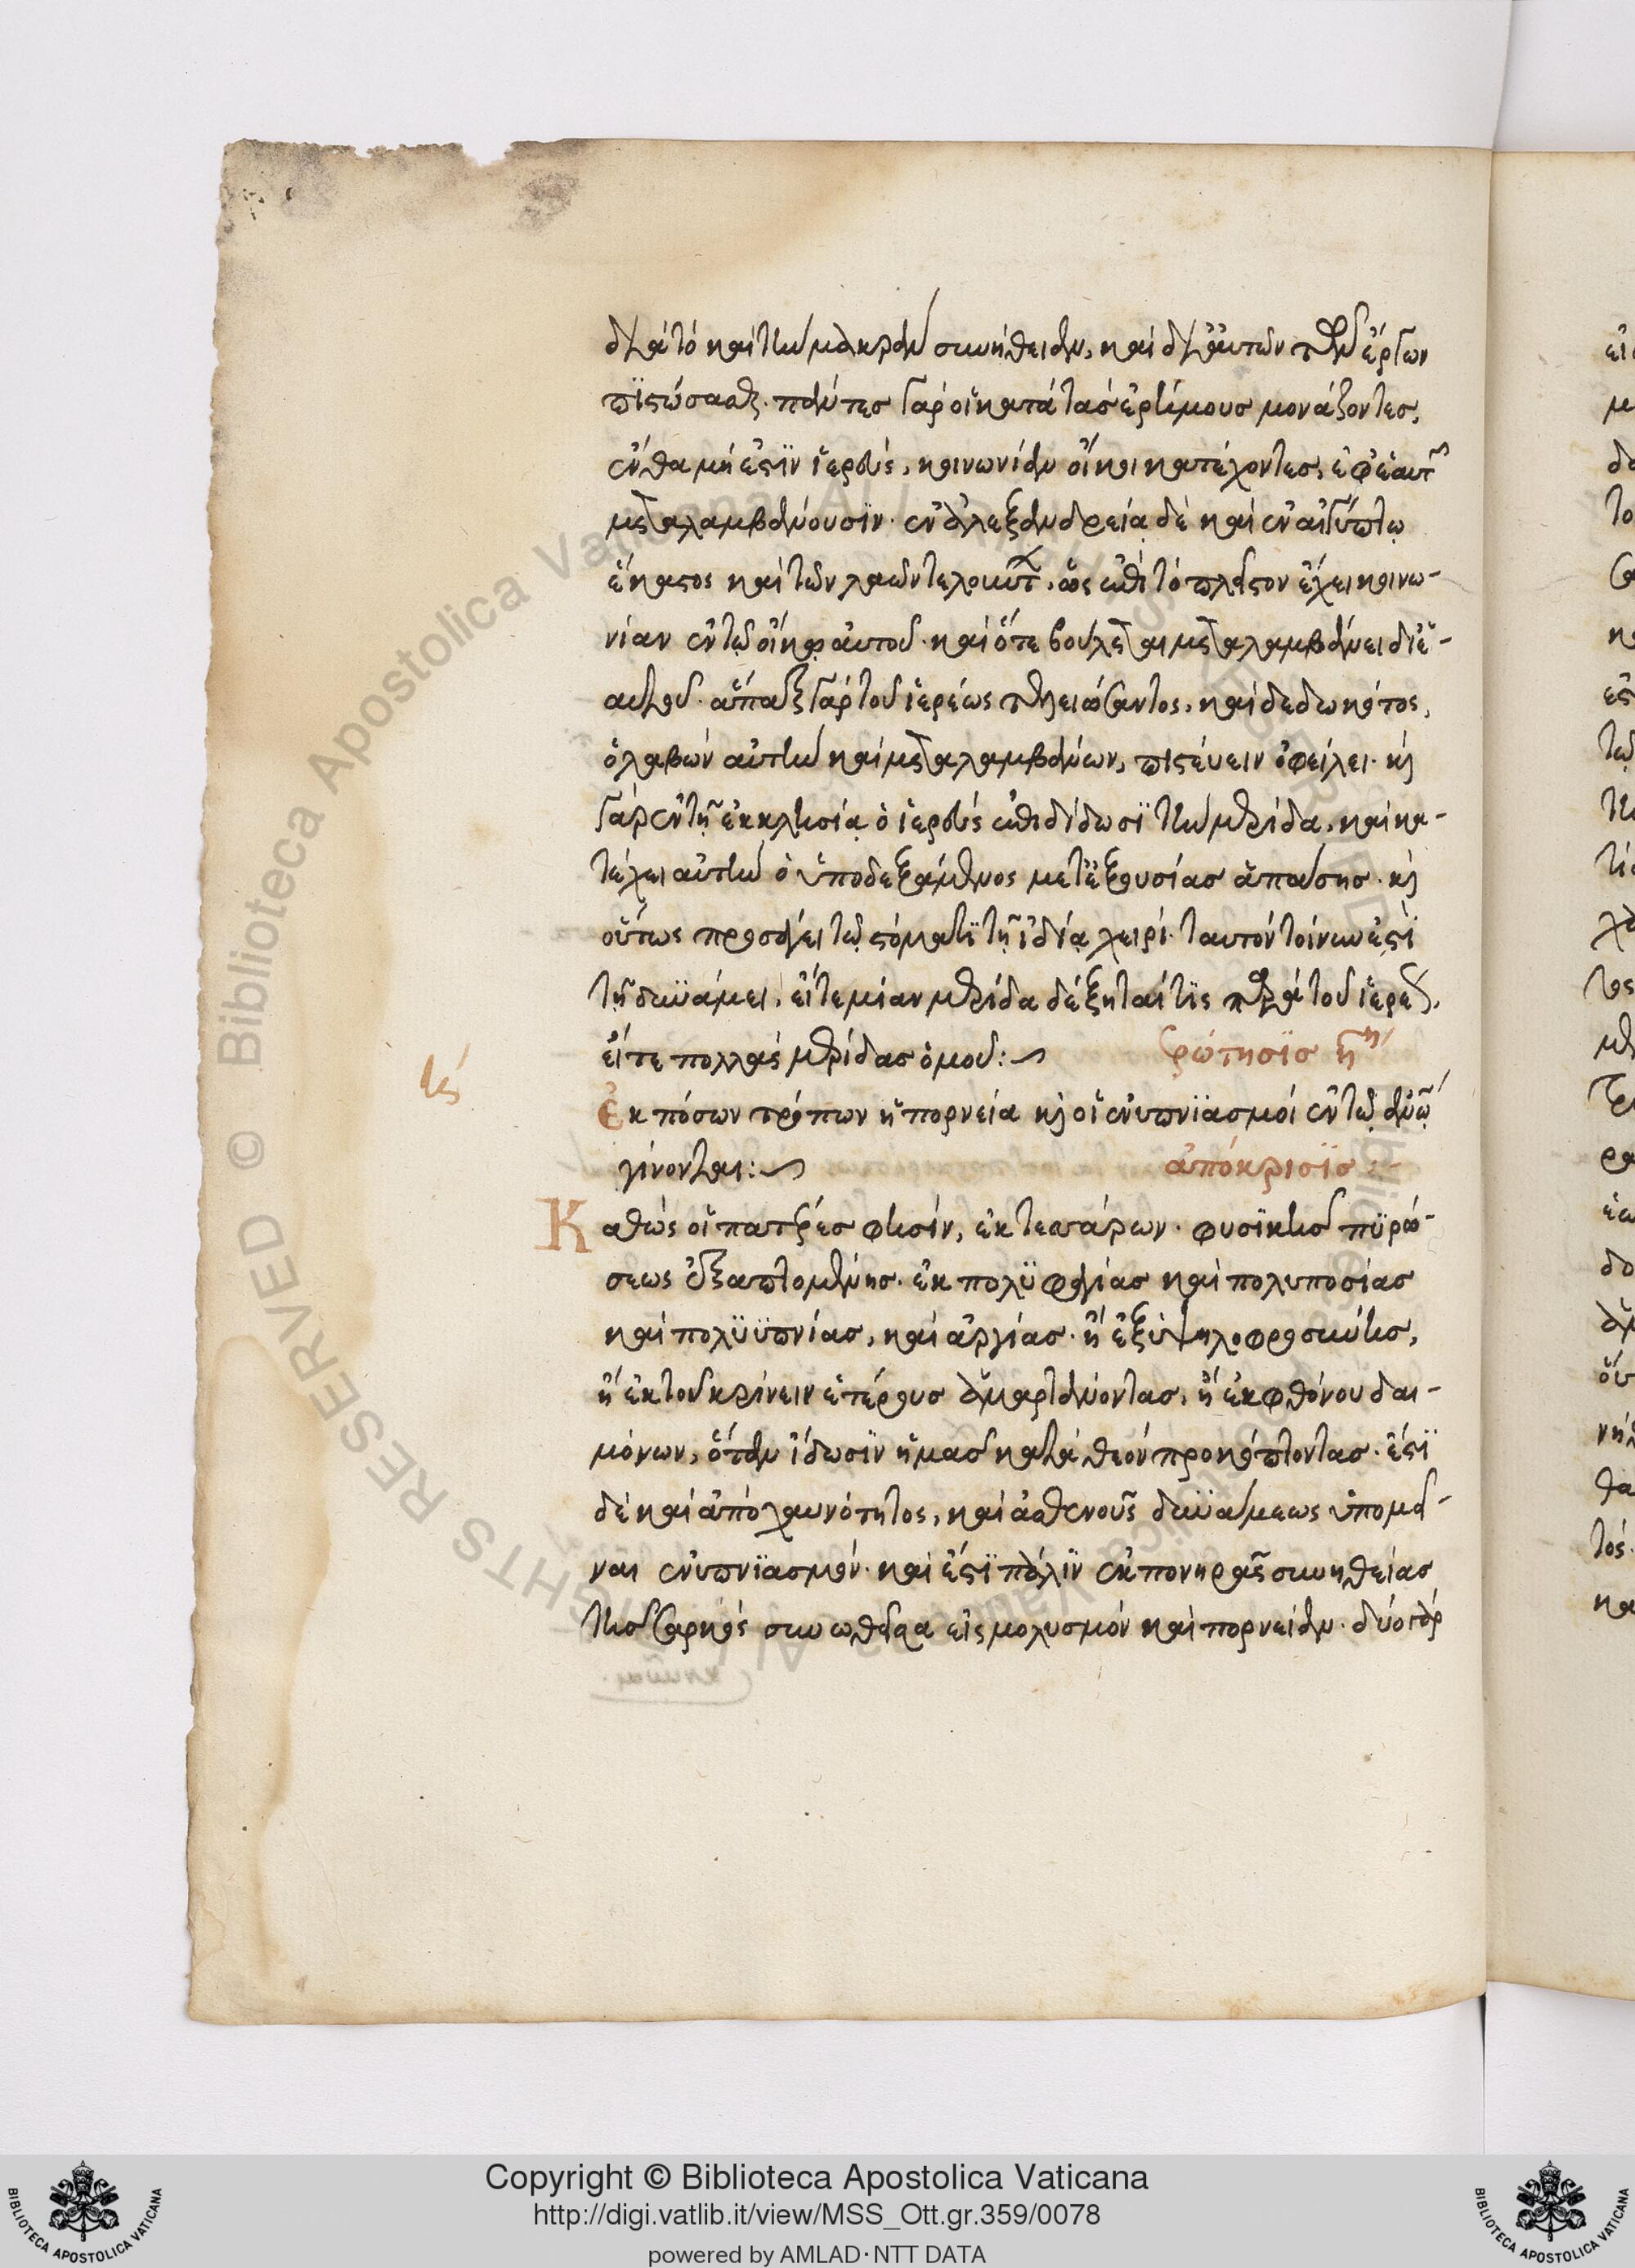 διὰ τὸ καὶ τὴν μακρὰν συνήθειαν, καὶ δι' αὐτῶν τῶν ἔργων
πϊστώσασθαι. πάντες γὰρ οἱ κατὰ τὰς ἐρήμους μονάζοντες,
ἔνθα μή ἐστϊν ἱερεὺς, κοινωνίαν οἴκοι κατέχοντες, ἐφ' ἑαυτῶν
μεταλαμβάνουσϊν. ἐν ἀλεξανδρεία δὲ καὶ ἐν αἰγύπτω
ἕκαστος καὶ τῶν λαῶν τελούντων, ὡς ἐπὶ τὸ πλεῖστον ἔχει κοινω-
νίαν ἐν τῶ οἴκω αὐτοῦ. καὶ ὅτε βούλεται μεταλαμβάνει δι' ἑ-
αυτοῦ. ἅπαξ γὰρ τοῦ ἱερέως τελειώσαντος, καὶ δεδωκότος,
ὁ λαβὼν αὐτὴν καὶ μεταλαμβάνων, πιστεύειν ὀφείλει. καὶ
γὰρ ἐν τῆ ἐκκλησία ὁ ἱερεὺς ἐπιδίδωσϊ τὴν μερίδα, καὶ κα-
τέχει αὐτὴν ὁ ὑποδεξάμενος μετ' ἐξουσίας ἁπάσης. καὶ
οὕτως προσάγει τῶ στόματϊ τῆ ἰδία χειρί. ταυτὸν τοίνυν ἐστϊ
τῆ δυνάμει, εἴτε μίαν μερίδα δέξηταί τϊς παρὰ τοῦ ἱερέως,
εἴτε πολλὰς μερίδας ὁμοῦ:
ἐρώτησϊς η
κϛ
Ἐκ πόσων τρόπων ἡ πορνεία καὶ οἱ ἐνυπνϊασμοὶ ἐν τῶ ἀνθρώπω
γίνονται:
ἀπόκρισϊς :
Καθὼς οἱ πατέρες φησίν, ἐκ τεσσάρων. φυσϊκῆς πϋρώ-
σεως ἐξαπτομένης. ἐκ πολϋφαγίας καὶ πολυποσίας
καὶ πολϋϋπνίας, καὶ ἀργίας. ἢ ἐξ ὑψηλοφροσύνης,
ἢ ἐκ τοῦ κρίνειν ἑτέρους ἁμαρτάνοντας, ἢ ἐκ φθόνου δαι-
μόνων, ὅταν ἴδωσϊν ἡμᾶς κατὰ θεὸν προκόπτοντας. ἔστϊ
δὲ καὶ ἀπὸ χαυνότητος, καὶ ἀσθενοῦς δυνάμεως ὑπομεῖ-
ναι ἐνυπνϊασμόν. καὶ ἔστϊ πάλϊν ἐκ πονηρᾶς συνηθείας
τῆς σαρκὸς συνωθεῖσα εἰς μολυσμὸν καὶ πορνείαν. δύο γὰρ